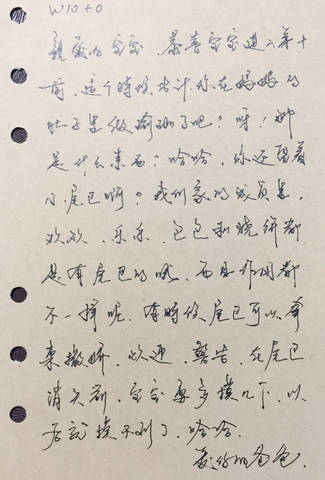 W10+0
亲爱的宝宝，恭喜宝宝进入第十
周，这个时候估计你在妈妈的
肚子里做瑜珈了吧？呀！那
是什么东西？哈哈，你还留着
小尾巴啊？我们家的成员里，
欢欢、乐乐、包包和烧饼都
是有尾巴的哦，而且作用都
不一样呢，有时候尾巴可以拿
来撒娇，欢迎，警告，在尾巴
消失前，宝宝要多摸几下，以
后就摸不到了，哈哈。
爱你的爸爸.